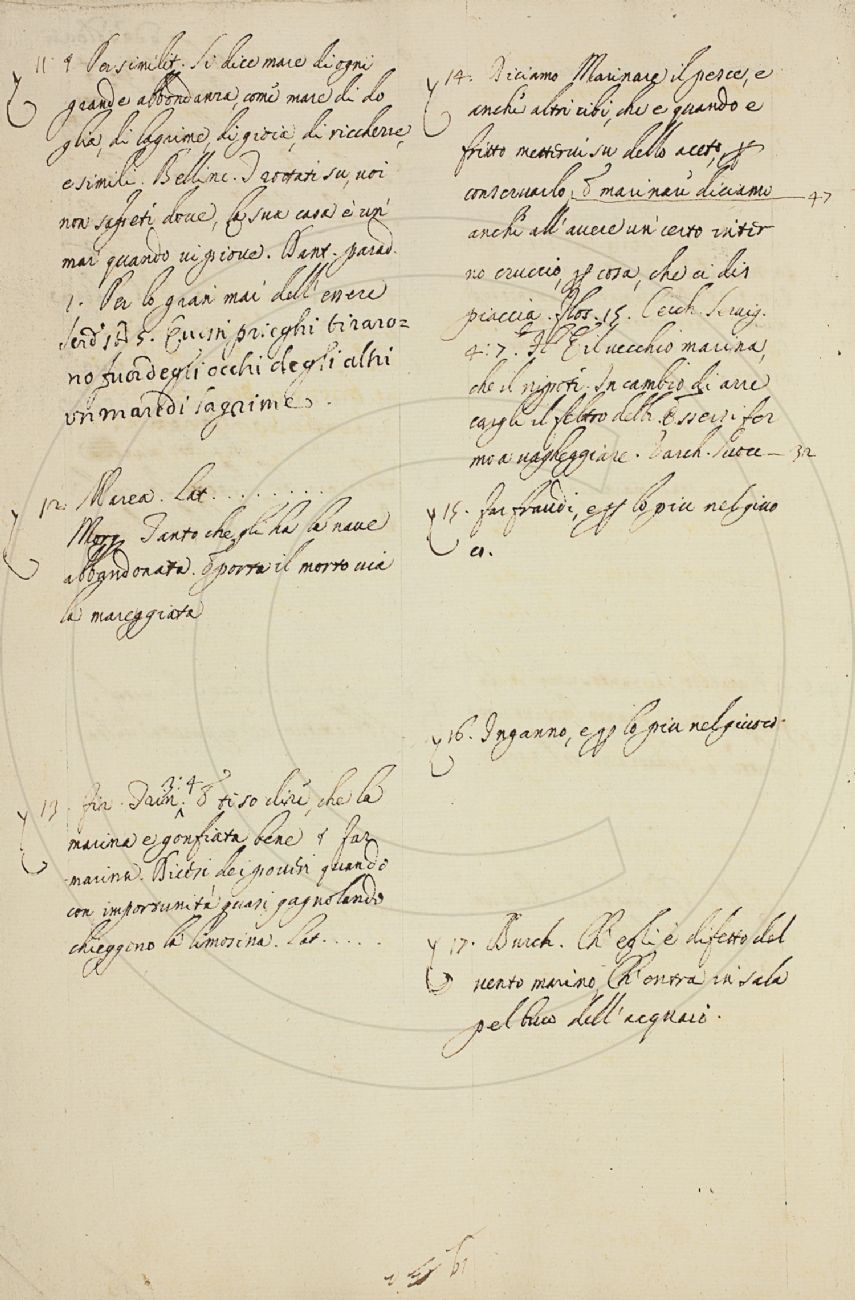 11 ¶ Per similit. Si dice mare di ogni
grande abbondanza, come mare di do
glia, di lagrime, di gioia, di ricchezze,
e simili. Bellinc. I rottati su, voi
non sapreti dove, la sua casa è un'
mar quando vi piove. Dant. parad.
1. Per lo gran mar dell'essere
Questi prieghi tiraro=
no fuor degli occhi degli altri
un mare di lagrime.
12. Marea. Lat. . . . . . . . .
Morg. Tanto che gli ha la nave
abbandonata. E porta il morto via
la mareggiata
13. Fir. Trin. 3. 4. E ti so dire, che la
marina è gonfiata bene ¶ far
marina. Dicesi dei poveri quando
con importunità quasi gagnolando
chieggono la limosina. Lat. . . . .
14. Diciamo Marinare il pesce, e
anche altri cibi, che e quando e
fritto mettervi su dello aceto, p
conservarlo, E marinare diciamo 47
anche all'avere un certo inter
no cruccio, p cosa, che ci dis
piaccia. Flos. 15. Cecch. Servig.
4. 7. Il E il vecchio marina,
che il nipoti. In cambio di arre
cargli il feltro debb. Essersi fer
mo a vagheggiare. Varch. Suoce 32
15. far fraudi, e p lo piu nel giuo
co.
16. Inganno, e p lo piu nel giuoco.
17. Burch. Ch'egli è difetto del
vento marino, Ch'entra in sala
pel buco dell'acquaio.